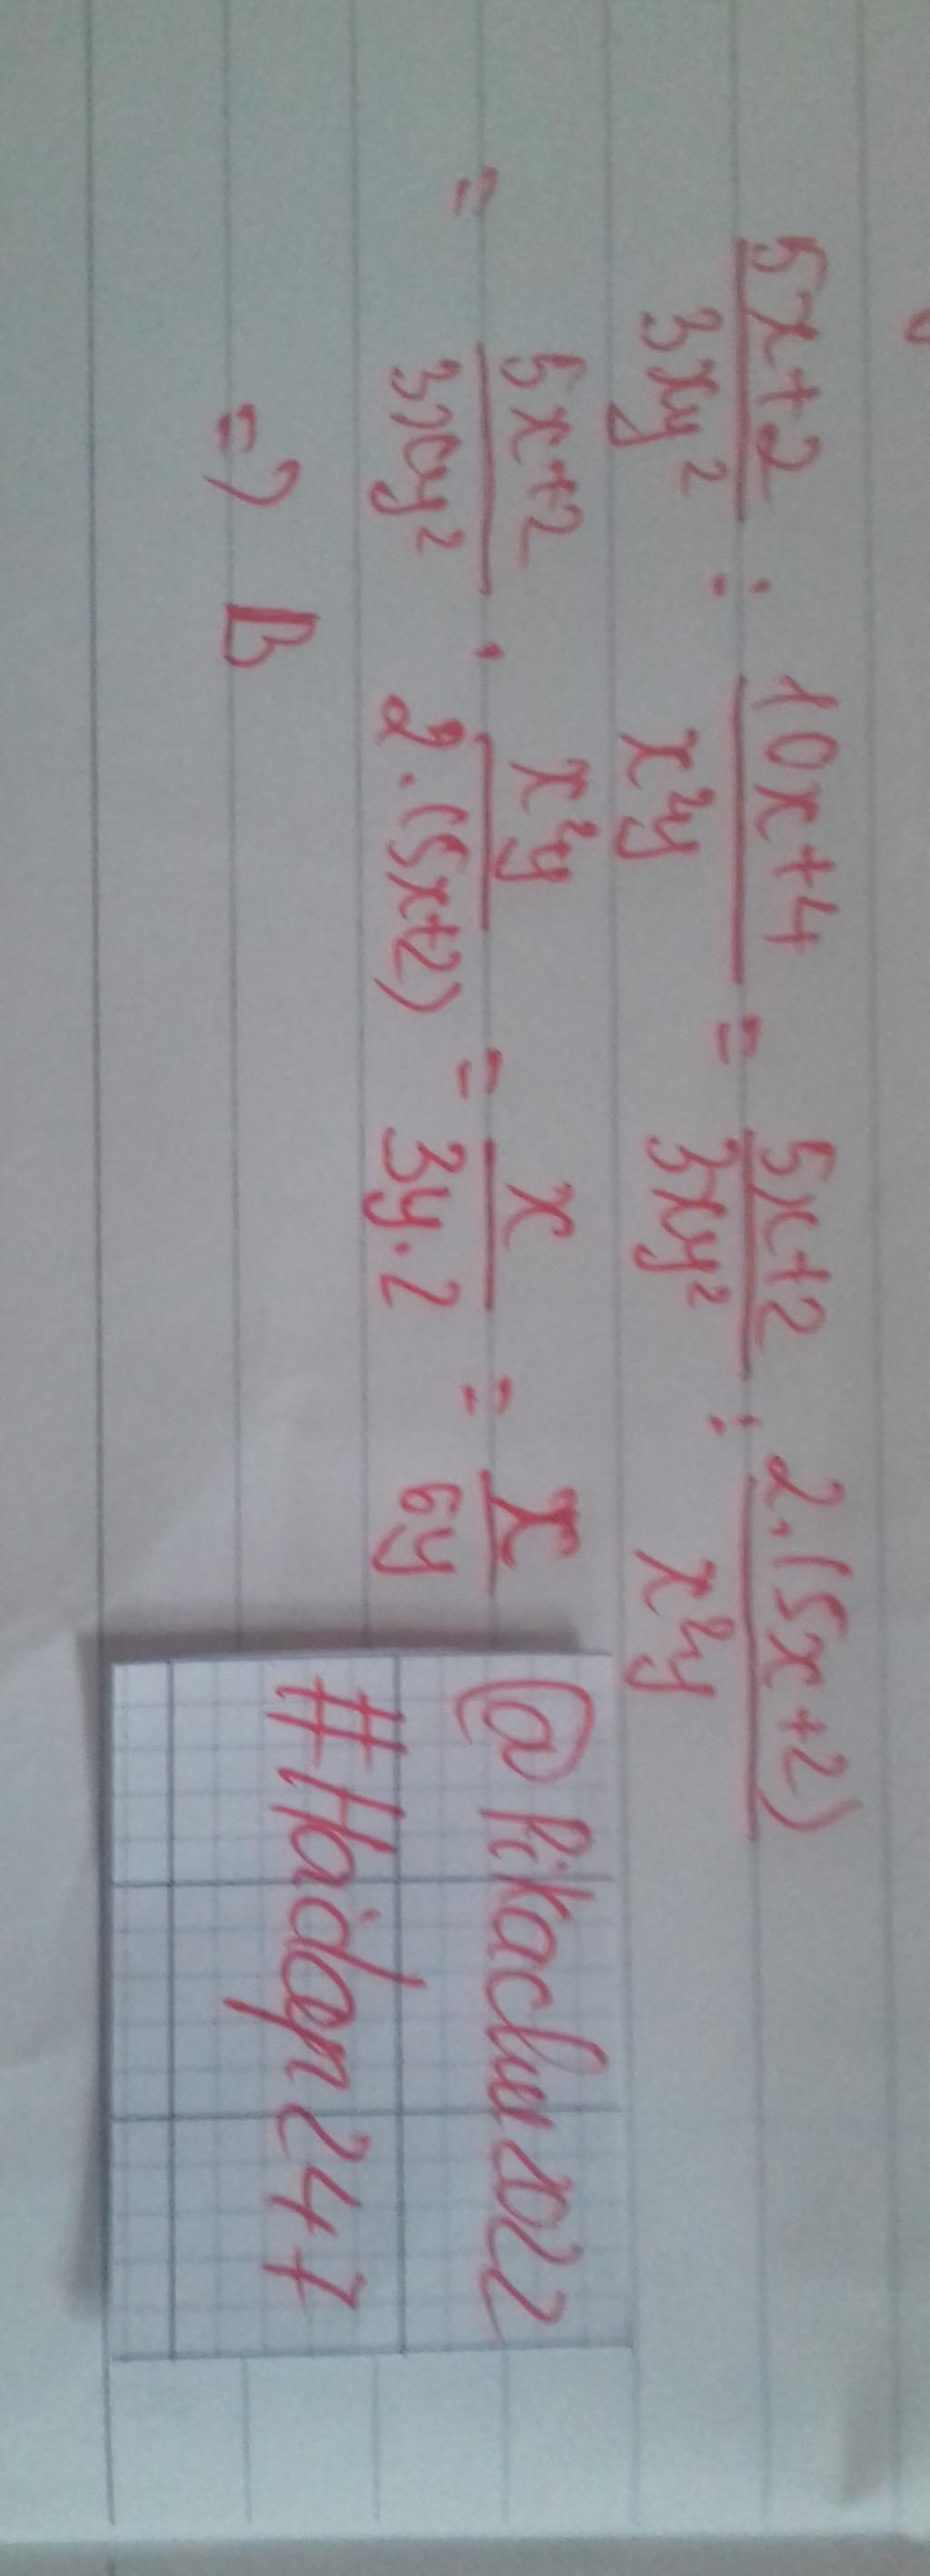 5x+2/3xy² : 10x+4/x²y = 5x+2/3xy² : 2.(5x+2)/x²y
= 5x+2/3xy² . x²y/2.(5x+2) = x/3y.2 = x/6y
=> B
@Pikachu2022
#Hoidap247